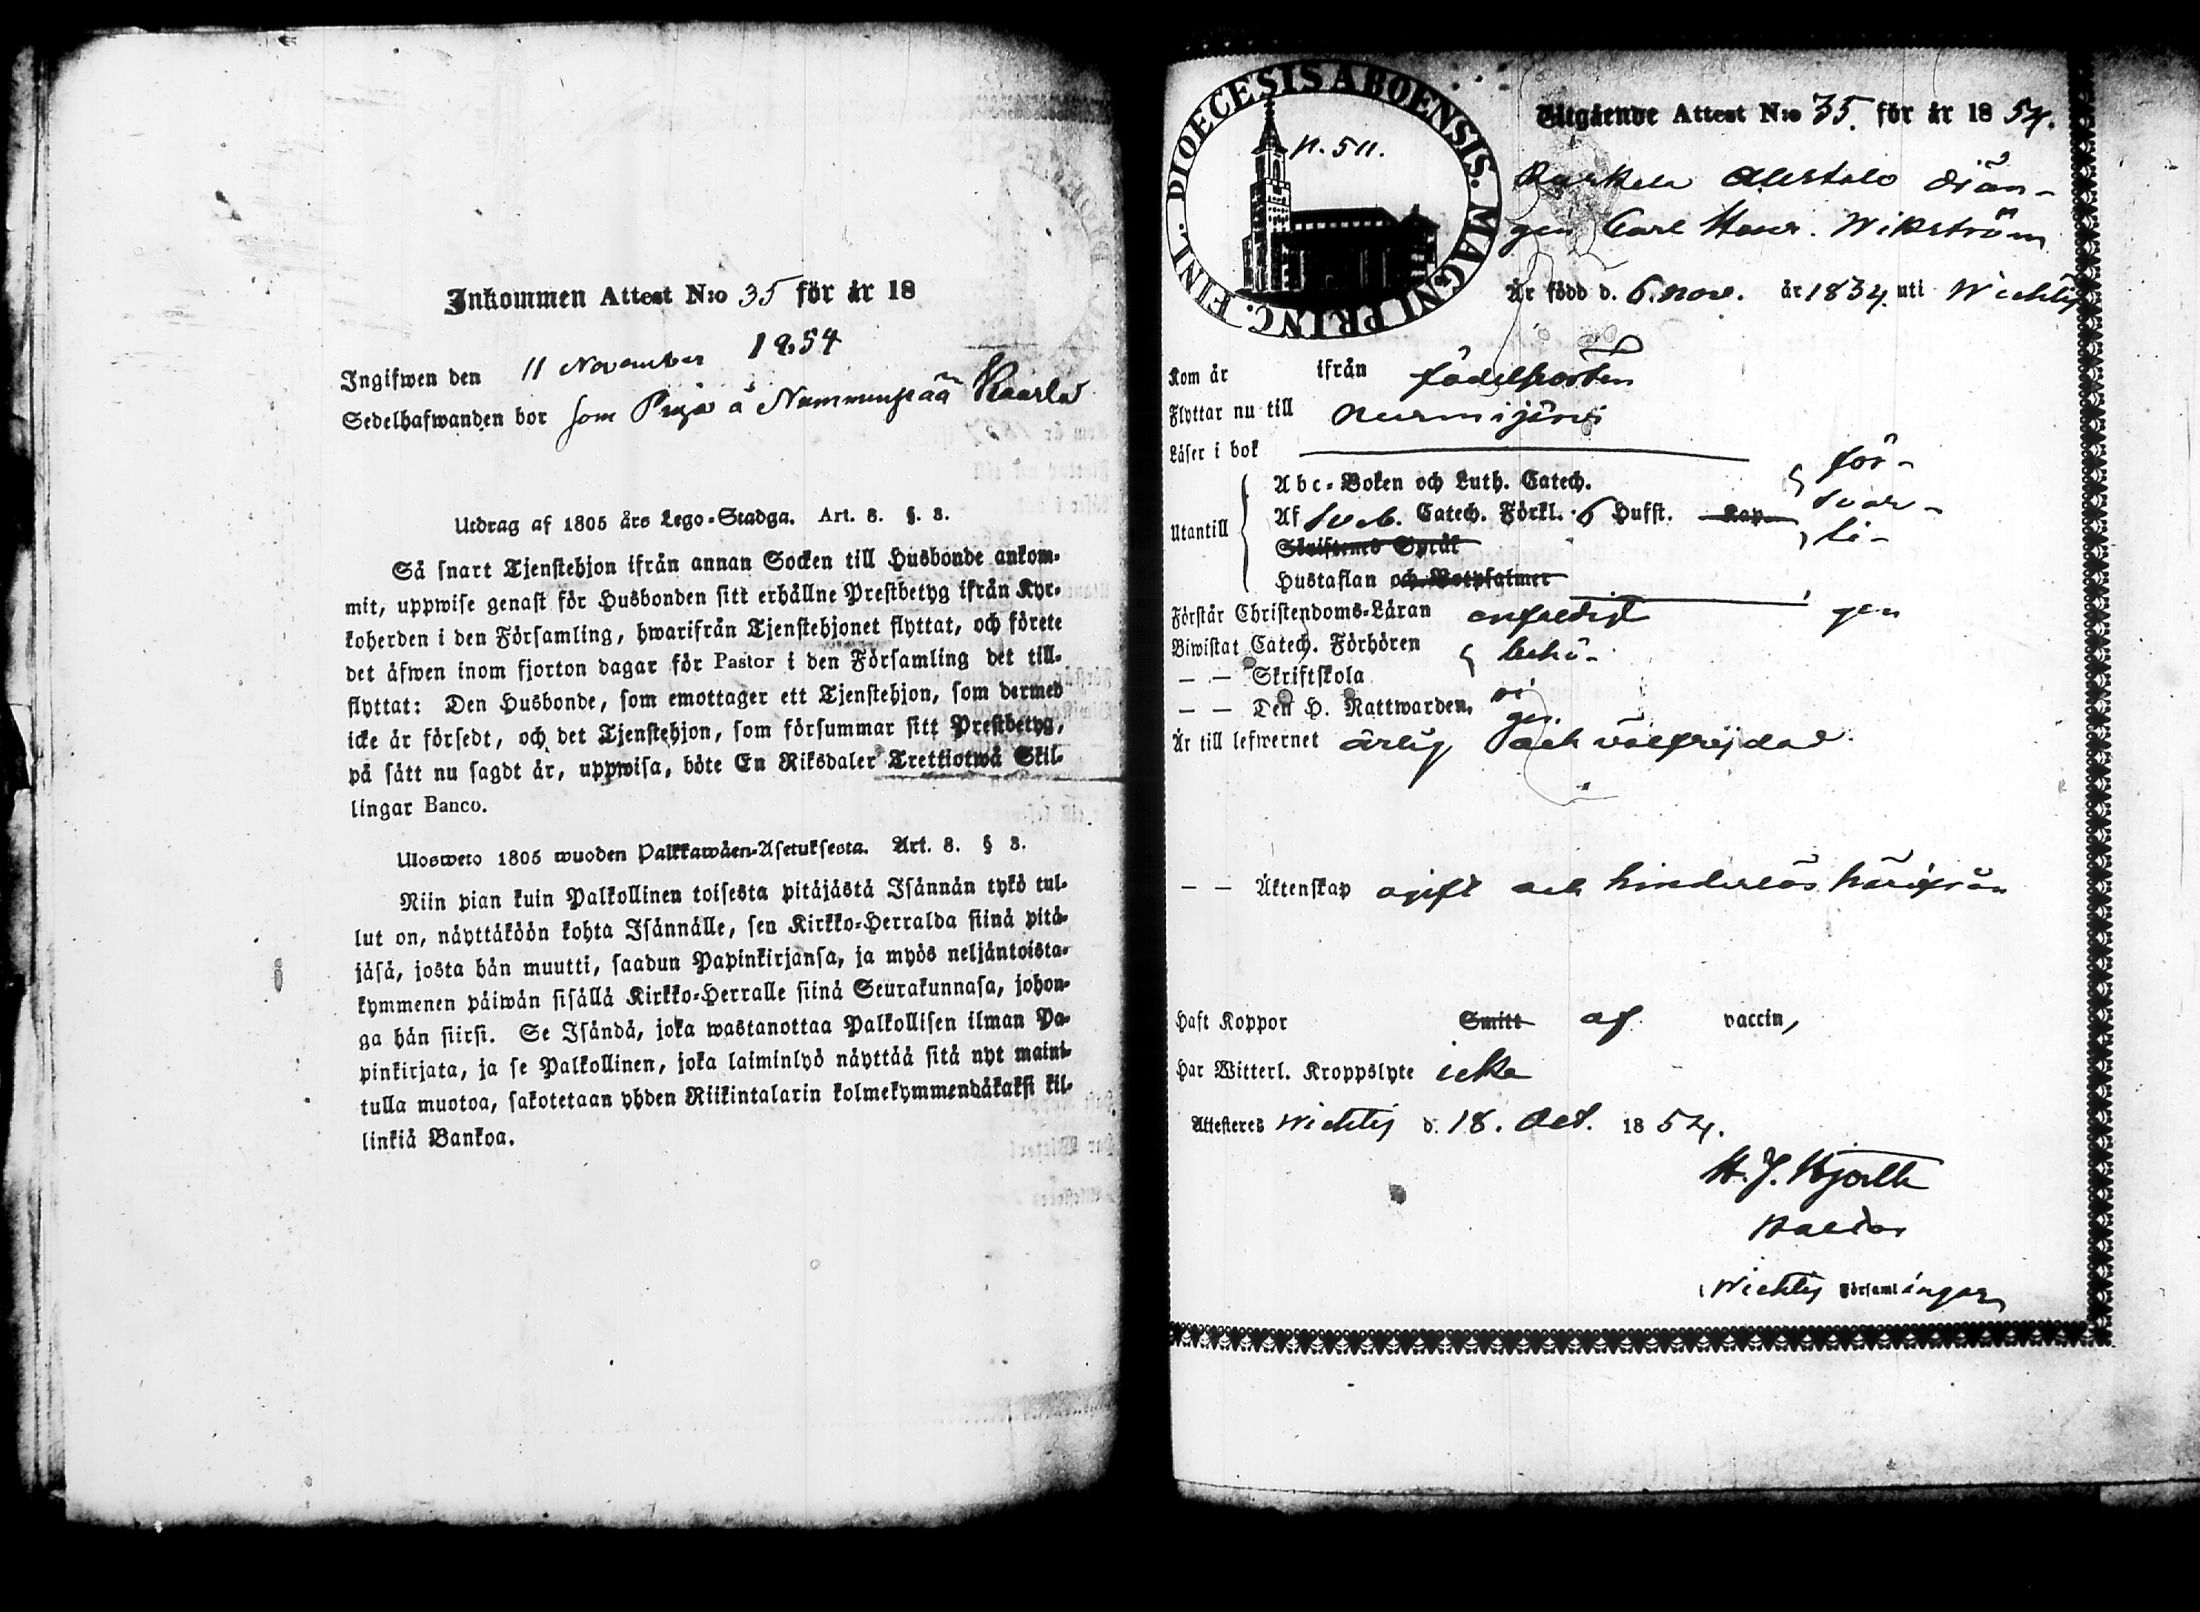 Inkommen Attest N:o 35 för år 18
1854
Ingifwen den 11 November
Sedelhafwanden bor som Piga å Nummenpää Kaarla
Utdrag af 1805 års Lego-Stadga. Art. 8. §. 3.
Så snart Tjenstehjon ifrån annan Socken till Husbonde ankom-
mit, uppwise genast för Husbonden sitt erhållne Prestbetyg ifrån Kyr-
koherden i den Församling, hwarifrån Tjenstehjonet flyttat, och förete
det äfwen inom fjorton dagar för Pastor i den Församling det till-
flyttat: Den Husbonde, som emottager ett Tjenstehjon, som dermed
icke är försedt, och det Tjenstehjon, som försummar sitt Prestbetyg,
på sätt nu sagdt är, uppwisa, böte En Riksdaler Trettiotwå Skil-
lingar Banco.
Ulosweto 1805 wuoden Palkkawäen-Asetuksesta. Art. 8. § 3.
Niin pian kuin Palkollinen toisesta pitäjästä Isännän tykö tul-
lut on, näyttäköön kohta Isännälle, sen Kirkko-Herralda siinä pitä-
jäsä, josta hän muutti, saadun Papinkirjansa, ja myös neljäntoista-
kymmenen päiwän sisällä Kirkko-Herralle siinä Seurakunnasa, johon-
ga hän siirsi. Se Isändä, joka wastanottaa Palkollisen ilman Pa-
pinkirjata, ja se Palkollinen, joka laiminlyö näyttää sitä nyt maini-
tulla muotoa, sakotetaan yhden Riikintalarin kolmekymmendäkaksi kil-
linkiä Bankoa.
DIOECESIS ABOENSIS. MAGNI PRINC. FINL.
Utgående Attest N:o 35. för år 18 54.
Alestalo drän-
gen Carl Henr. Wikström
Är född d. 6. nov. år 1834. uti Wichtis
Kom år ifrån födelseorten
Flyttar nu till Nurmijärvi
Läser i bok för-
Abc-Boken och Luth. Catech.
Utantill Af Sveb. Catech. Förkl. 6 Hufst. Kap. svar-
Skriftenes Språk li-
Hustaflan och Botpsalmer
Förstår Christendoms-Läran enfaldigt gen
Biwistat Catech. Förhören behö-
— — Skriftskola
— — Den H. Nattwarden, ri
gen.
Är till lefwernet ärlig och välfrejdad.
— — Äktenskap ogift och hinderlös härifrån
Haft Koppor Smitt af vaccin,
Har Witterl. Kroppslyte icke
Attesteres Wichtis d. 18. Oct. 18 54.
H. J. Hjorth
Wichtis Församlingar